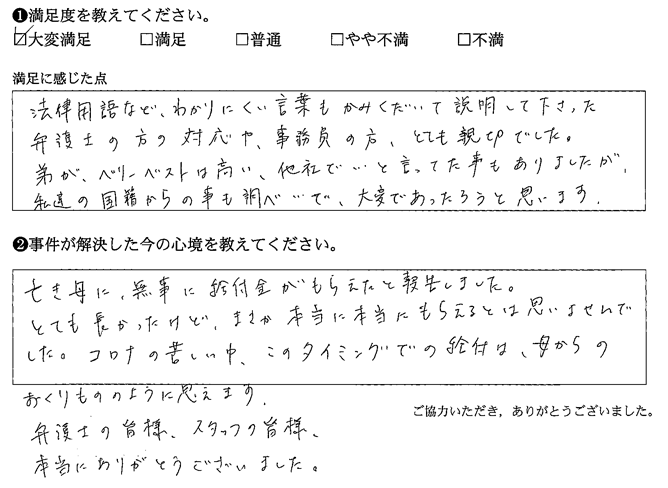 ❶満足度を教えてください。
☑大変満足 □満足 □普通 □やや不満 □不満
満足に感じた点
法律用語など、わかりにくい言葉もかみくだいて説明して下さった
弁護士の方の対応や、事務員の方、とても親切でした。
弟が、ベリーベストは高い、他社で…と言ってた事もありましたが、
私達の国籍からの事も調べ…で、大変であったろうと思います。
❷事件が解決した今の心境を教えてください。
亡き母に、無事に給付金がもらえたと報告しました。
とても長かったけど、まさか本当に本当にもらえるとは思いませんで
した。コロナの苦しい中、このタイミングでの給付は、母からの
おくりもののように思えます。
ご協力いただき、ありがとうございました。
弁護士の皆様、スタッフの皆様、
本当にありがとうございました。